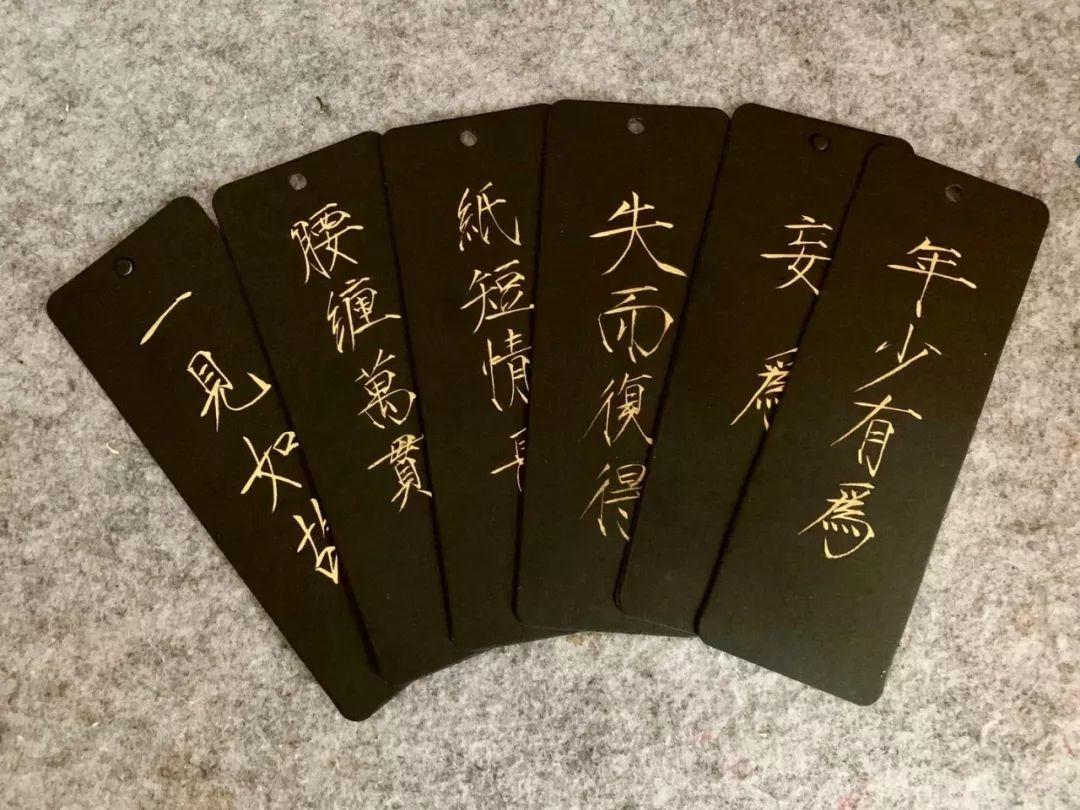 一見如故
腰纏萬貫
紙短情長
失而復得
妄為
年少有爲